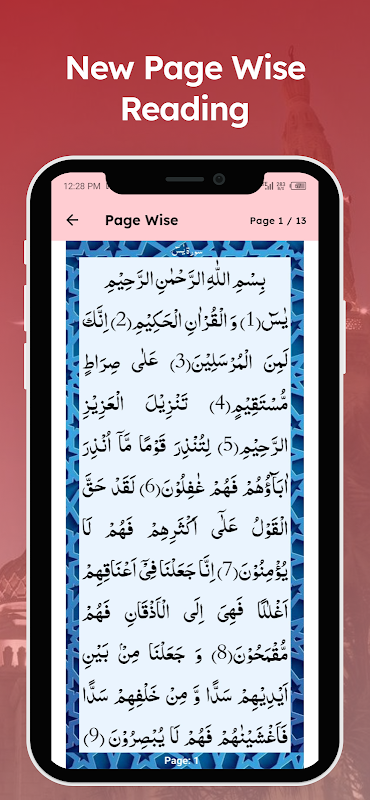 New Page Wise
Reading
12:28 PM
Page Wise
Page 1 / 13
سورة يٰسٓ
بِسْمِ اللّٰهِ الرَّحْمٰنِ الرَّحِيْمِ
يٰسٓ(1) وَ الْقُرْاٰنِ الْحَكِيْمِ(2) اِنَّكَ
لَمِنَ الْمُرْسَلِيْنَ(3) عَلٰى صِرَاطٍ
مُّسْتَقِيْمٍ(4) تَنْزِيْلَ الْعَزِيْزِ
الرَّحِيْمِ(5) لِتُنْذِرَ قَوْمًا مَّاۤ اُنْذِرَ
اٰبَآؤُهُمْ فَهُمْ غٰفِلُوْنَ(6) لَقَدْ حَقَّ
الْقَوْلُ عَلٰۤى اَكْثَرِهِمْ فَهُمْ لَا
يُؤْمِنُوْنَ(7) اِنَّا جَعَلْنَا فِيْۤ اَعْنَاقِهِمْ
اَغْلٰلًا فَهِيَ اِلَى الْاَذْقَانِ فَهُمْ
مُّقْمَحُوْنَ(8) وَ جَعَلْنَا مِنْۢ بَيْنِ
اَيْدِيْهِمْ سَدًّا وَّ مِنْ خَلْفِهِمْ سَدًّا
فَاَغْشَيْنٰهُمْ فَهُمْ لَا يُبْصِرُوْنَ(9)
Page: 1